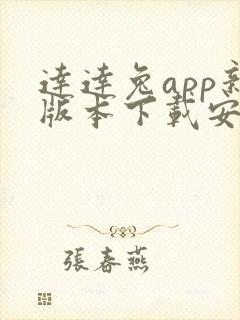 達達兔app新
版本下載安
張春燕